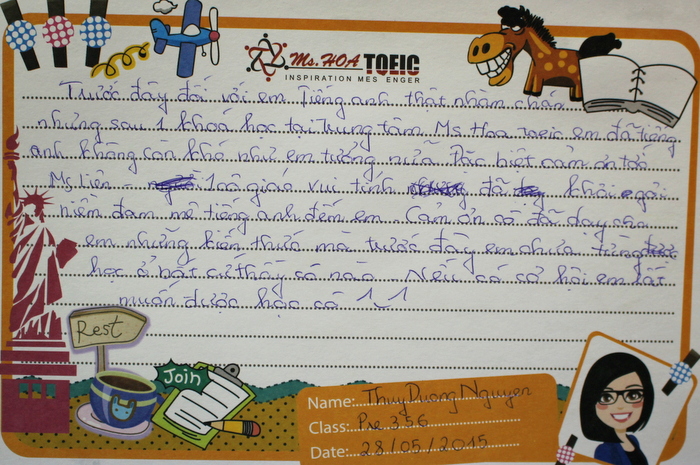 Ms. HOA TOEIC
INSPIRATION MESSENGER
Trước đây đối với em Tiếng anh thật nhàm chán
nhưng sau 1 khoá học tại Trung tâm Ms Hoa Toeic em đã tiếng
anh không còn khó như em tưởng nữa. Đặc biệt cảm ơn tới
Ms Liên - 1 cô giáo vui tính đã khơi gợi
niềm đam mê tiếng anh đến em. Cảm ơn cô đã dạy cho
em những kiến thức mà trước đây em chưa từng
học ở bất cứ thầy cô nào. Nếu có cơ hội em rất
muốn được học cô ^_^
Rest
Join
Name: Thuy Duong Nguyen
Class: Pre 356
Date: 28/05/2015